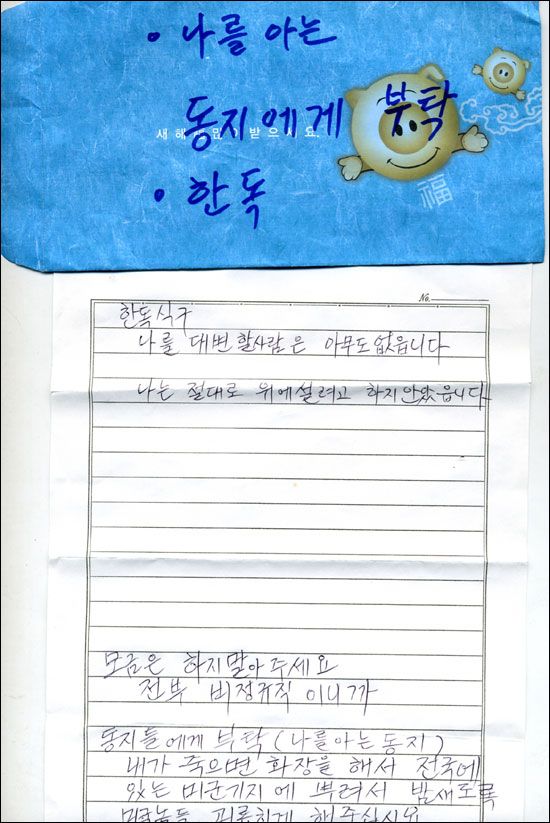 • 나를 아는
동지에게 부탁
새해 많이 받으세요.
福
• 한독
No.
한독식구
나를 대변할사람은 아무도없읍니다
나는 절대로 위에설려고 하지안았읍니다
모금은 하지말아주세요
전부 비정규직이니까
동지들에게 부탁(나를아는동지)
내가 죽으면 화장을 해서 전국에
있는 미군기지에 뿌려서 밤새도록
미군놈들 괴롭히게 해주십시요